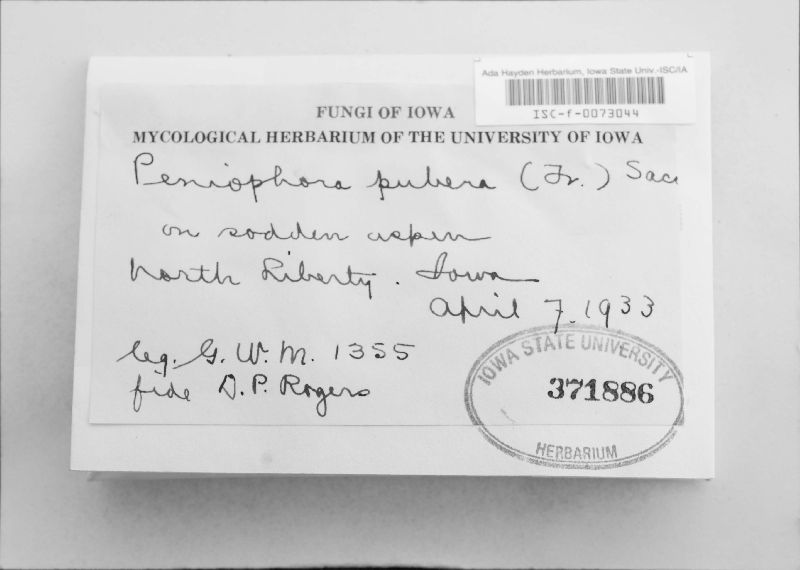 Ada Hayden Herbarium, Iowa State Univ.-ISC/IA
ISC-f-0073044
FUNGI OF IOWA
MYCOLOGICAL HERBARIUM OF THE UNIVERSITY OF IOWA
Peniophora pubera (Fr.) Sacc
on sodden aspen
North Liberty. Iowa
April 7. 1933
leg. G. W. M. 1355
fide D. P. Rogers
IOWA STATE UNIVERSITY
371886
HERBARIUM